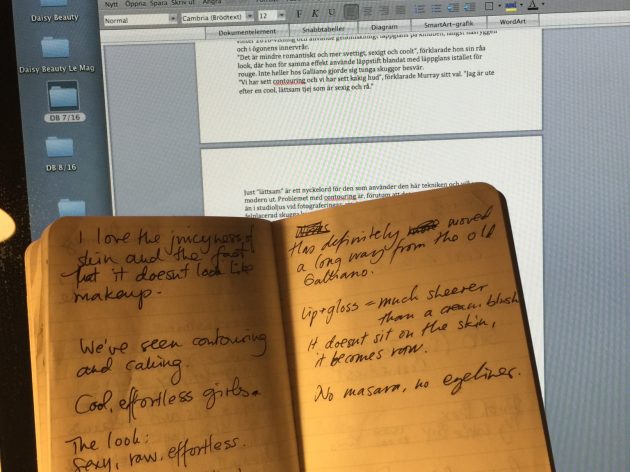 Nytt
Öppna
Spara
Skriv ut
Ångra
Normal
Cambria (Brödtext)
12
F K U
Dokumentelement
Snabbtabeller
Diagram
SmartArt-grafik
WordArt
Daisy Beauty
Daisy Beauty Le Mag
DB 7/16
DB 8/16
och i ögonens innervrår.
"Det är mindre romantiskt och mer svettigt, sexigt och coolt", förklarade hon sin råa
look, där hon för samma effekt använde läppstift blandat med läppglans istället för
rouge. Inte heller hos Galliano gjorde sig tunga skuggor besvär.
"Vi har sett contouring och vi har sett kakig hud", förklarade Murray sitt val. "Jag är ute
efter en cool, lättsam tjej som är sexig och rå."
Just "lättsam" är ett nyckelord för den som använder den här tekniken och vill
modern ut. Problemet med contouring är, förutom att
än i studioljus vid fotograferingar
felplacerad skugga
I love the juicyness of
skin and the fact
that it doesn't look like
makeup.
We've seen contouring
and caking.
Cool, effortless girls.
The look:
Sexy, raw, effortless.
Has definitely moved
a long way from the old
Galliano.
Lip+gloss = much sheerer
than a cream blush
It doesnt sit on the skin,
it becomes raw.
No masara, no eyeliner.